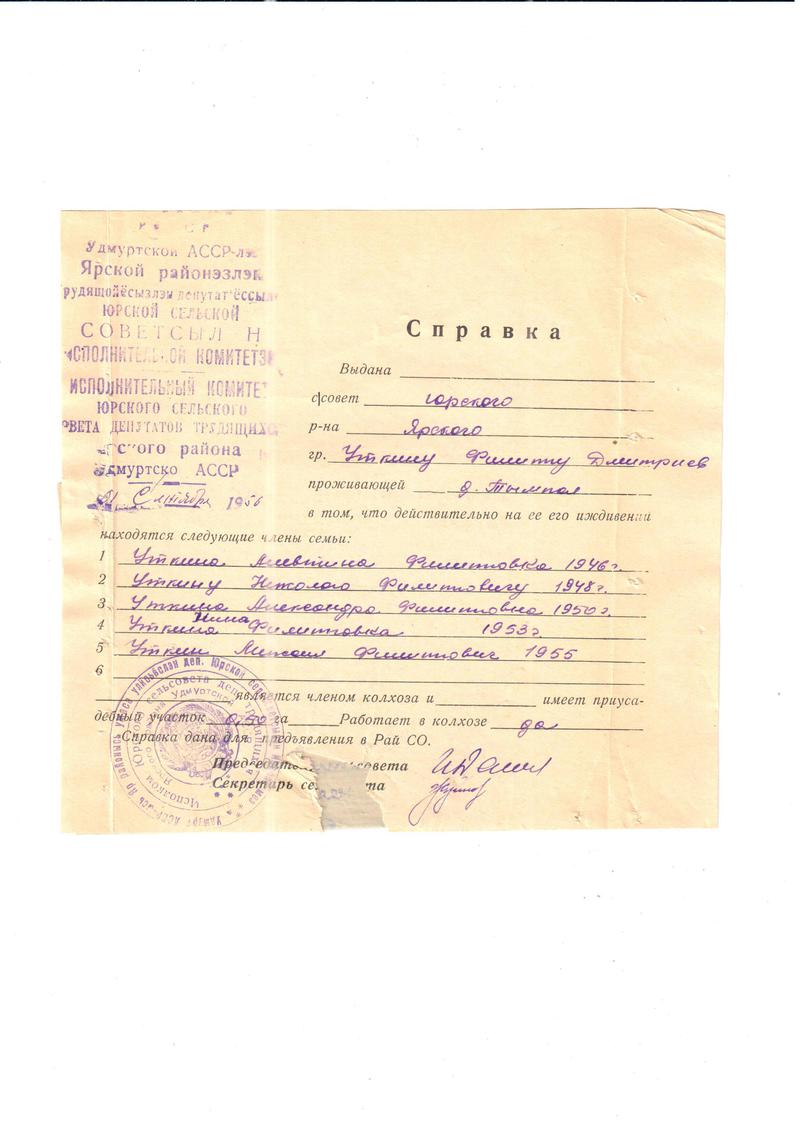 Удмуртской АССР-лэн
Ярской районэзлэн
рудящойёсызлэн депутат'ёссылэн
ЮРСКОЙ СЕЛЬСКОЙ
СОВЕТСЫЛ Н
ИСПОЛНИТЕЛЬНОЙ КОМИТЕТЭЗ
ИСПОЛНИТЕЛЬНЫЙ КОМИТЕТ
ЮРСКОГО СЕЛЬСКОГО
ОВЕТА ДЕПУТАТОВ ТРУДЯЩИХС
Ярского района
Удмуртско АССР
21 Сентября 1956
Справка
Выдана
с|совет Юрского
р-на Ярского
гр. Уткину Филиппу Дмитриев
проживающей д. Тымпал
в том, что действительно на ее его иждивении
находятся следующие члены семьи:
1 Уткина Алевтина Филипповна 1946 г.
2 Уткину Николаю Филипповичу 1948 г.
3 Уткина Александра Филипповна 1950 г.
4 Уткина Нина Филипповна 1953 г.
5 Уткин Михаил Филиппович 1955
6
является членом колхоза и имеет приуса-
дебный участок 0,50 га Работает в колхозе да
Справка дана для предъявления в Рай СО.
Председатель сельсовета
Секретарь сельсовета